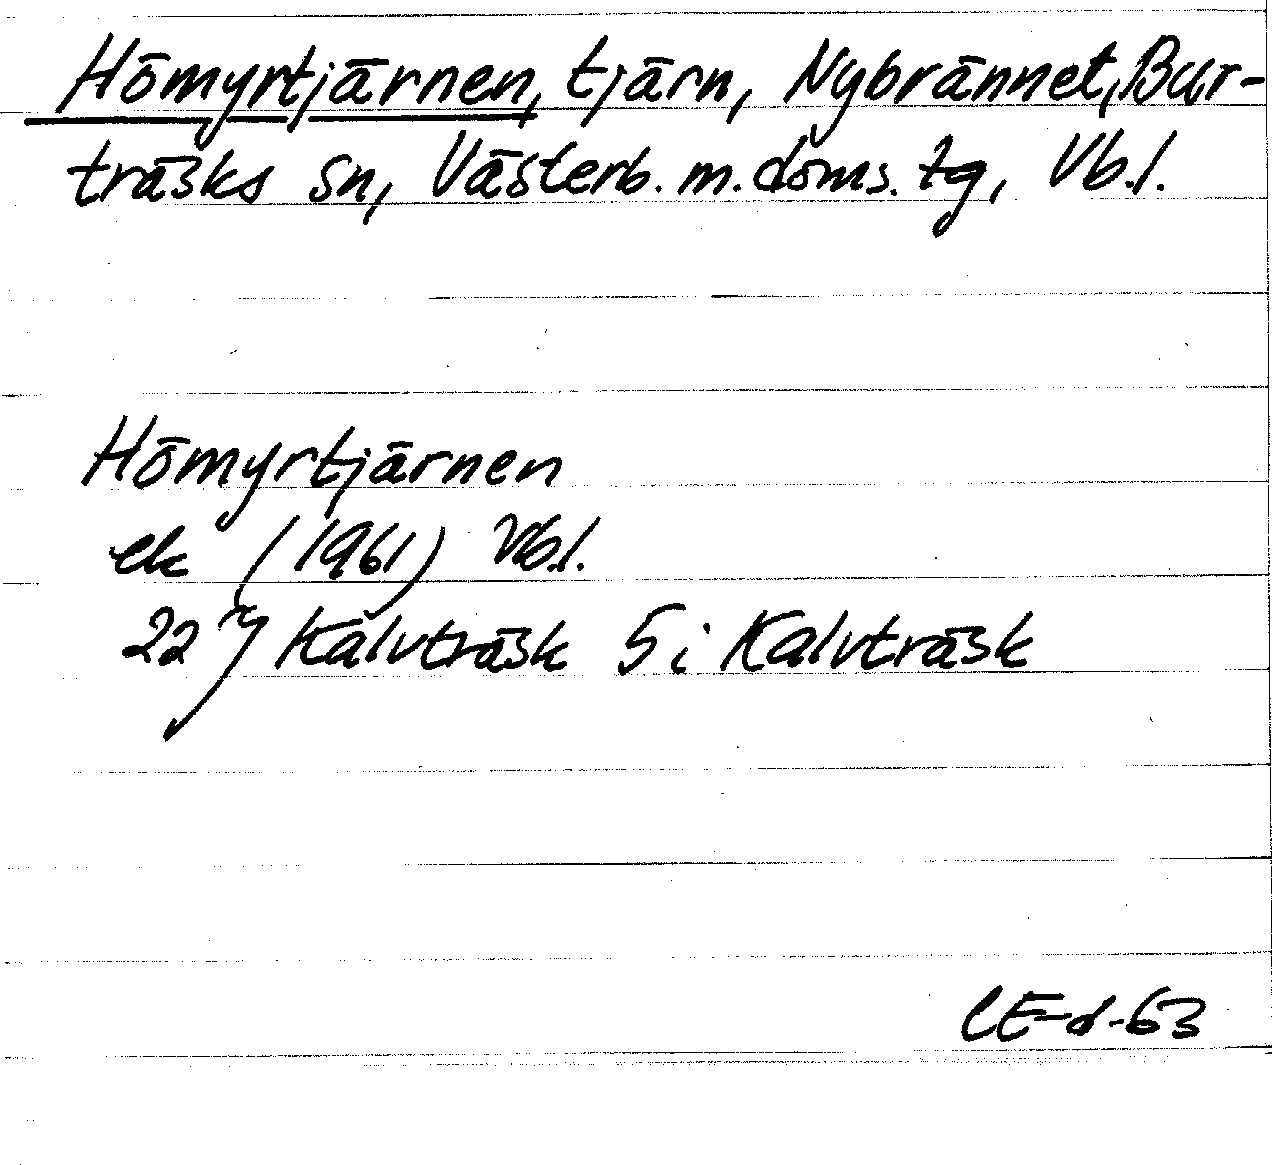 Hömyrtjärnen, tjärn, Nybrännet, Bur-
träsks sn, Västerb. m. doms. tg, Vb.l.
Hömyrtjärnen
ek (1961) Vb.l.
22 J Kalvträsk 5 i Kalvträsk
CE-d-63